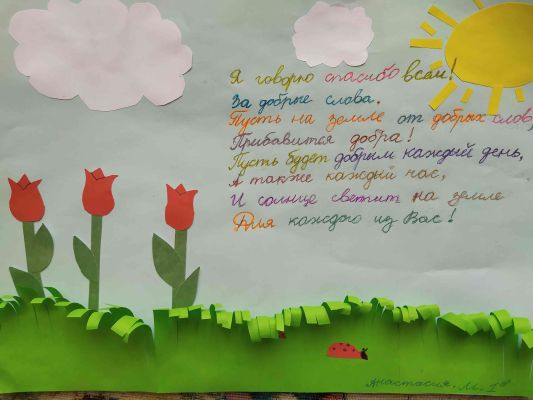 Я говорю спасибо всем!
За добрые слова.
Пусть на земле от добрых слов,
Прибавится добра!
Пусть будет добрым каждый день,
А также каждый час,
И солнце светит на земле
Для каждого из Вас!
Анастасия. М. 1